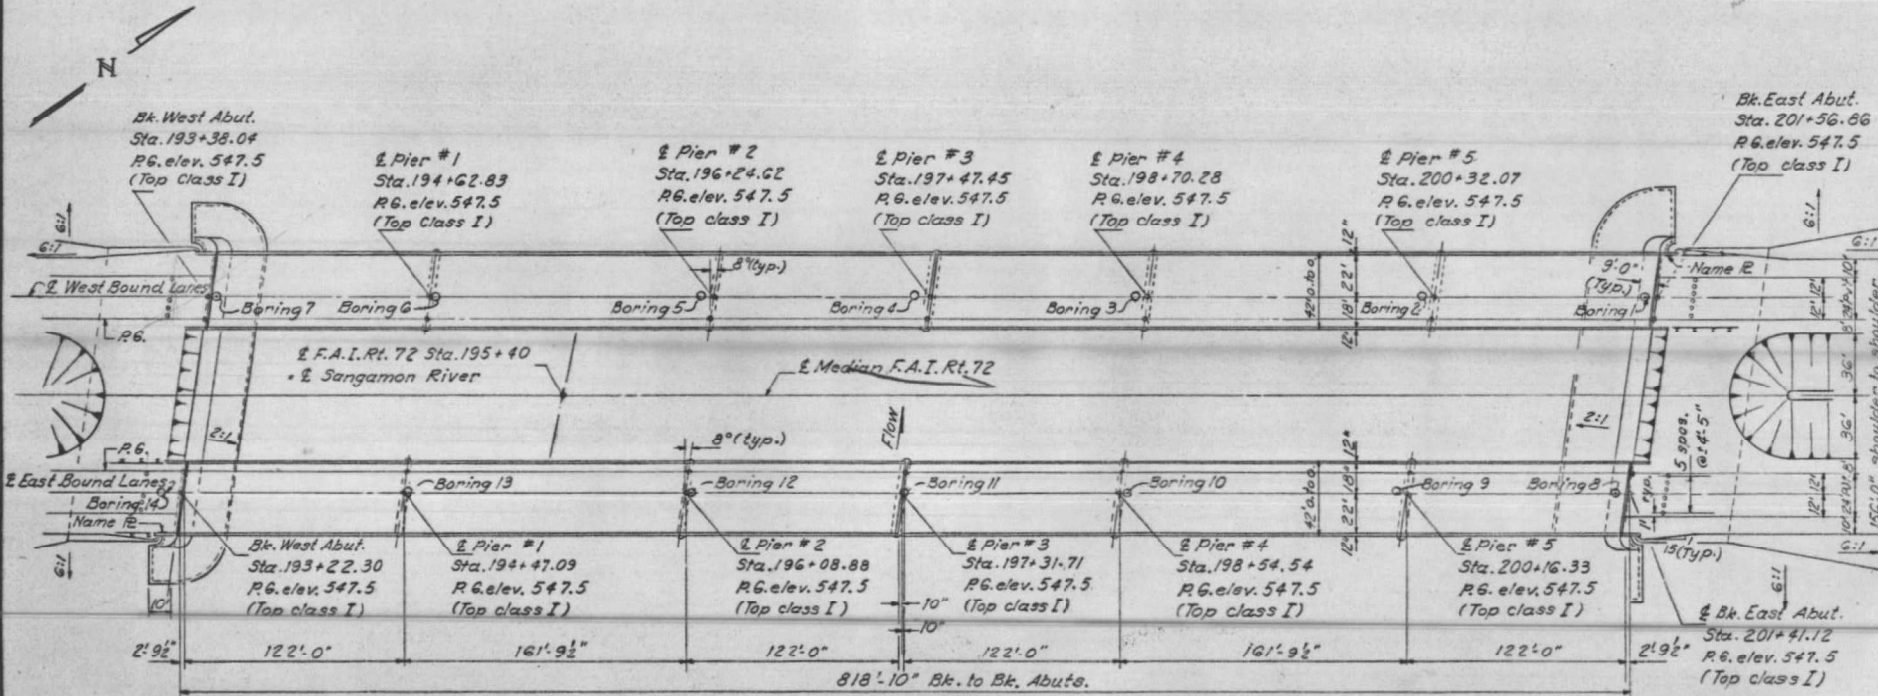 N
Bk. West Abut.
Sta. 193+38.04
P.G. elev. 547.5
(Top Class I)
℄ Pier #1
Sta. 194+62.83
P.G. elev. 547.5
(Top Class I)
℄ Pier #2
Sta. 196+24.62
P.G. elev. 547.5
(Top class I)
℄ Pier #3
Sta. 197+47.45
P.G. elev. 547.5
(Top class I)
℄ Pier #4
Sta. 198+70.28
P.G. elev. 547.5
(Top class I)
℄ Pier #5
Sta. 200+32.07
P.G. elev. 547.5
(Top class I)
Bk. East Abut.
Sta. 201+56.86
P.G. elev. 547.5
(Top class I)
6:1
6:1
6:1
6:1
8°(typ.)
12"
22'
18'
12"
42' o. to o.
9'-0"
(Typ.)
Name ℞
℄ West Bound Lanes
Boring 7
Boring 6
Boring 5
Boring 4
Boring 3
Boring 2
Boring 1
12' 12'
P.G.
℄ F.A.I. Rt. 72 Sta. 195+40
℄ Sangamon River
℄ Median F.A.I. Rt. 72
Flow
2:1
2:1
36'
36'
156'-0" shoulder to shoulder
5 spas.
@ 4'-5"
P.G.
8°(typ.)
12"
18'
22'
12"
42' o. to o.
℄ East Bound Lanes
Boring 14
Boring 13
Boring 12
Boring 11
Boring 10
Boring 9
Boring 8
1' typ.
12' 12'
Name ℞
15'(Typ.)
6:1
6:1
6:1
10'
Bk. West Abut.
Sta. 193+22.30
P.G. elev. 547.5
(Top class I)
℄ Pier #1
Sta. 194+47.09
P.G. elev. 547.5
(Top class I)
℄ Pier #2
Sta. 196+08.88
P.G. elev. 547.5
(Top class I)
℄ Pier #3
Sta. 197+31.71
P.G. elev. 547.5
(Top class I)
℄ Pier #4
Sta. 198+54.54
P.G. elev. 547.5
(Top class I)
℄ Pier #5
Sta. 200+16.33
P.G. elev. 547.5
(Top class I)
℄ Bk. East Abut.
Sta. 201+41.12
P.G. elev. 547.5
(Top class I)
10"
10"
2'-9½"
122'-0"
161'-9½"
122'-0"
122'-0"
161'-9½"
122'-0"
2'-9½"
818'-10" Bk. to Bk. Abuts.